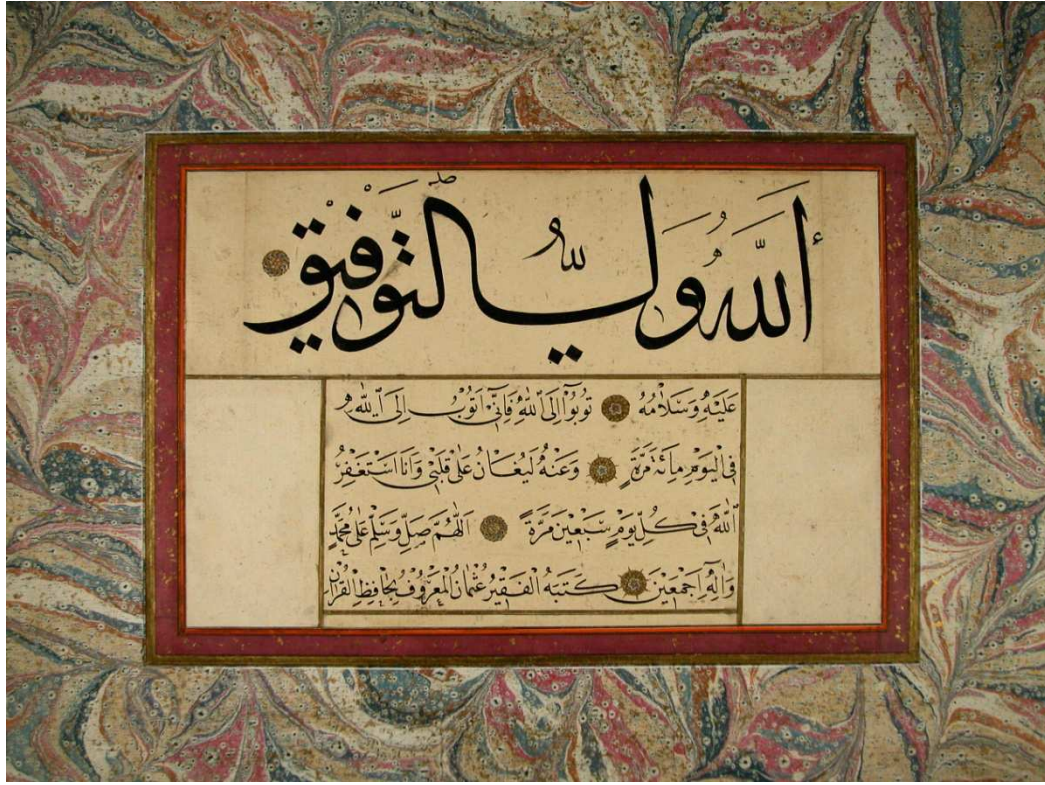 أَللّٰهُ وَلِيُّ التَّوْفِيقِ
عَلَيْهِ وَسَلَامُهُ تُوبُوٓا اِلَى اللّٰهِ فَاِنّٖٓى اَتُوبُ اِلَى اللّٰهِ
فِى الْيَوْمِ مِائَةَ مَرَّةٍ وَعَنْهُ لَيُغَانُ عَلٰى قَلْبٖى وَاَنَا اَسْتَغْفِرُ
اللّٰهَ فٖى كُلِّ يَوْمٍ سَبْعٖينَ مَرَّةً اَللّٰهُمَّ صَلِّ وَسَلِّمْ عَلٰى مُحَمَّدٍ
وَاٰلِهٖ اَجْمَعٖينَ كَتَبَهُ الْفَقٖيرُ عُثْمَانُ الْمَعْرُوفُ بِحَافِظِ الْقُرْاٰنِ